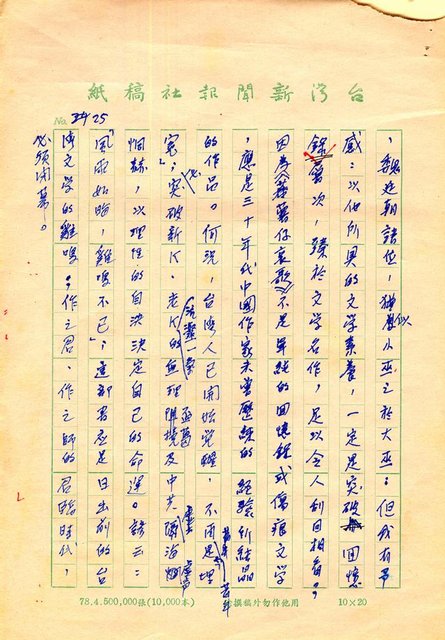 台灣新聞報社稿紙
No. 25
，魏廷朝諸位，獨似小巫之於大巫。但我有予
感：以他所具的文學素養，一定是突破回憶
錄層次，臻於文學名作，足以令人刮目相看。
因為蕃薯仔哀歌不是單純的回憶錄或傷痕文學
，應是三十年代中國作家未曾歷練的經驗所結晶
的作品。何況，台灣人已開始覺醒，不再是埋
冤，突破新K、老K的血理障礙及中共
恫赫，以理性的自決決定自己的命運。詩云：
「風雨如晦，雞鳴不已」，這部君應是日出前的台
灣文學的雞鳴。作之君、作之師的君臨時代，
必須閉幕。
78.4.500,000張(10,000本)
撰稿外勿作他用
10×20